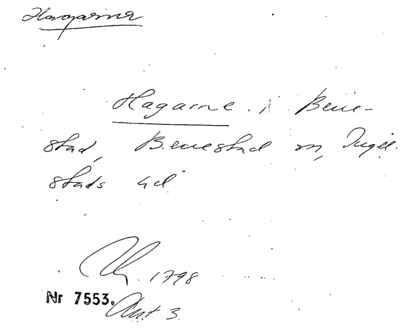 Hagarne
Hagarne i Bene-
stad, Benestad sn, Ingel-
stads hd
1798
Nr 7553. Akt 3